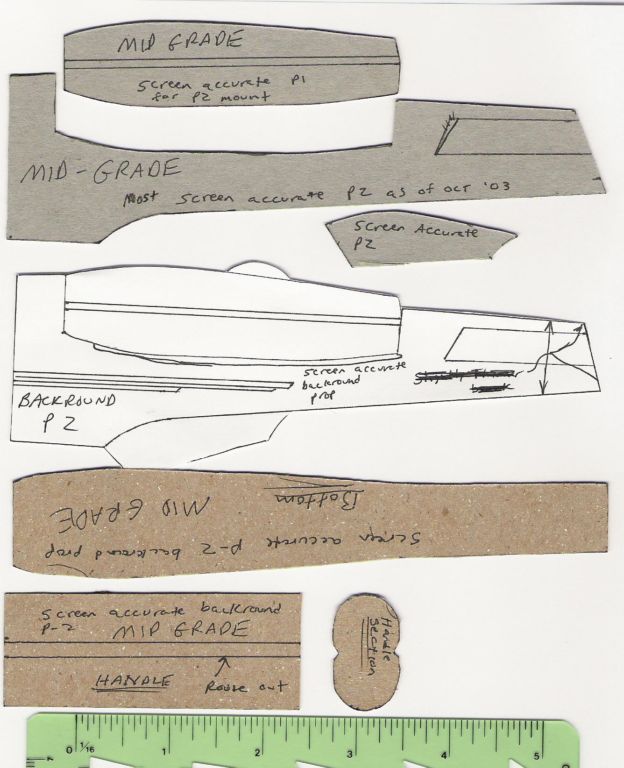 MID GRADE
Screen accurate P1
for P2 mount
MID-GRADE
Most Screen accurate P2 as of oct '03
Screen Accurate
P2
screen accurate
backround
prop
BACKROUND
P2
Bottom
MID GRADE
Screen accurate P-2 backround prop
Screen accurate backround
P-2 MID GRADE
HANDLE
Route out
Handle
Section
0 1/16 1 2 3 4 5